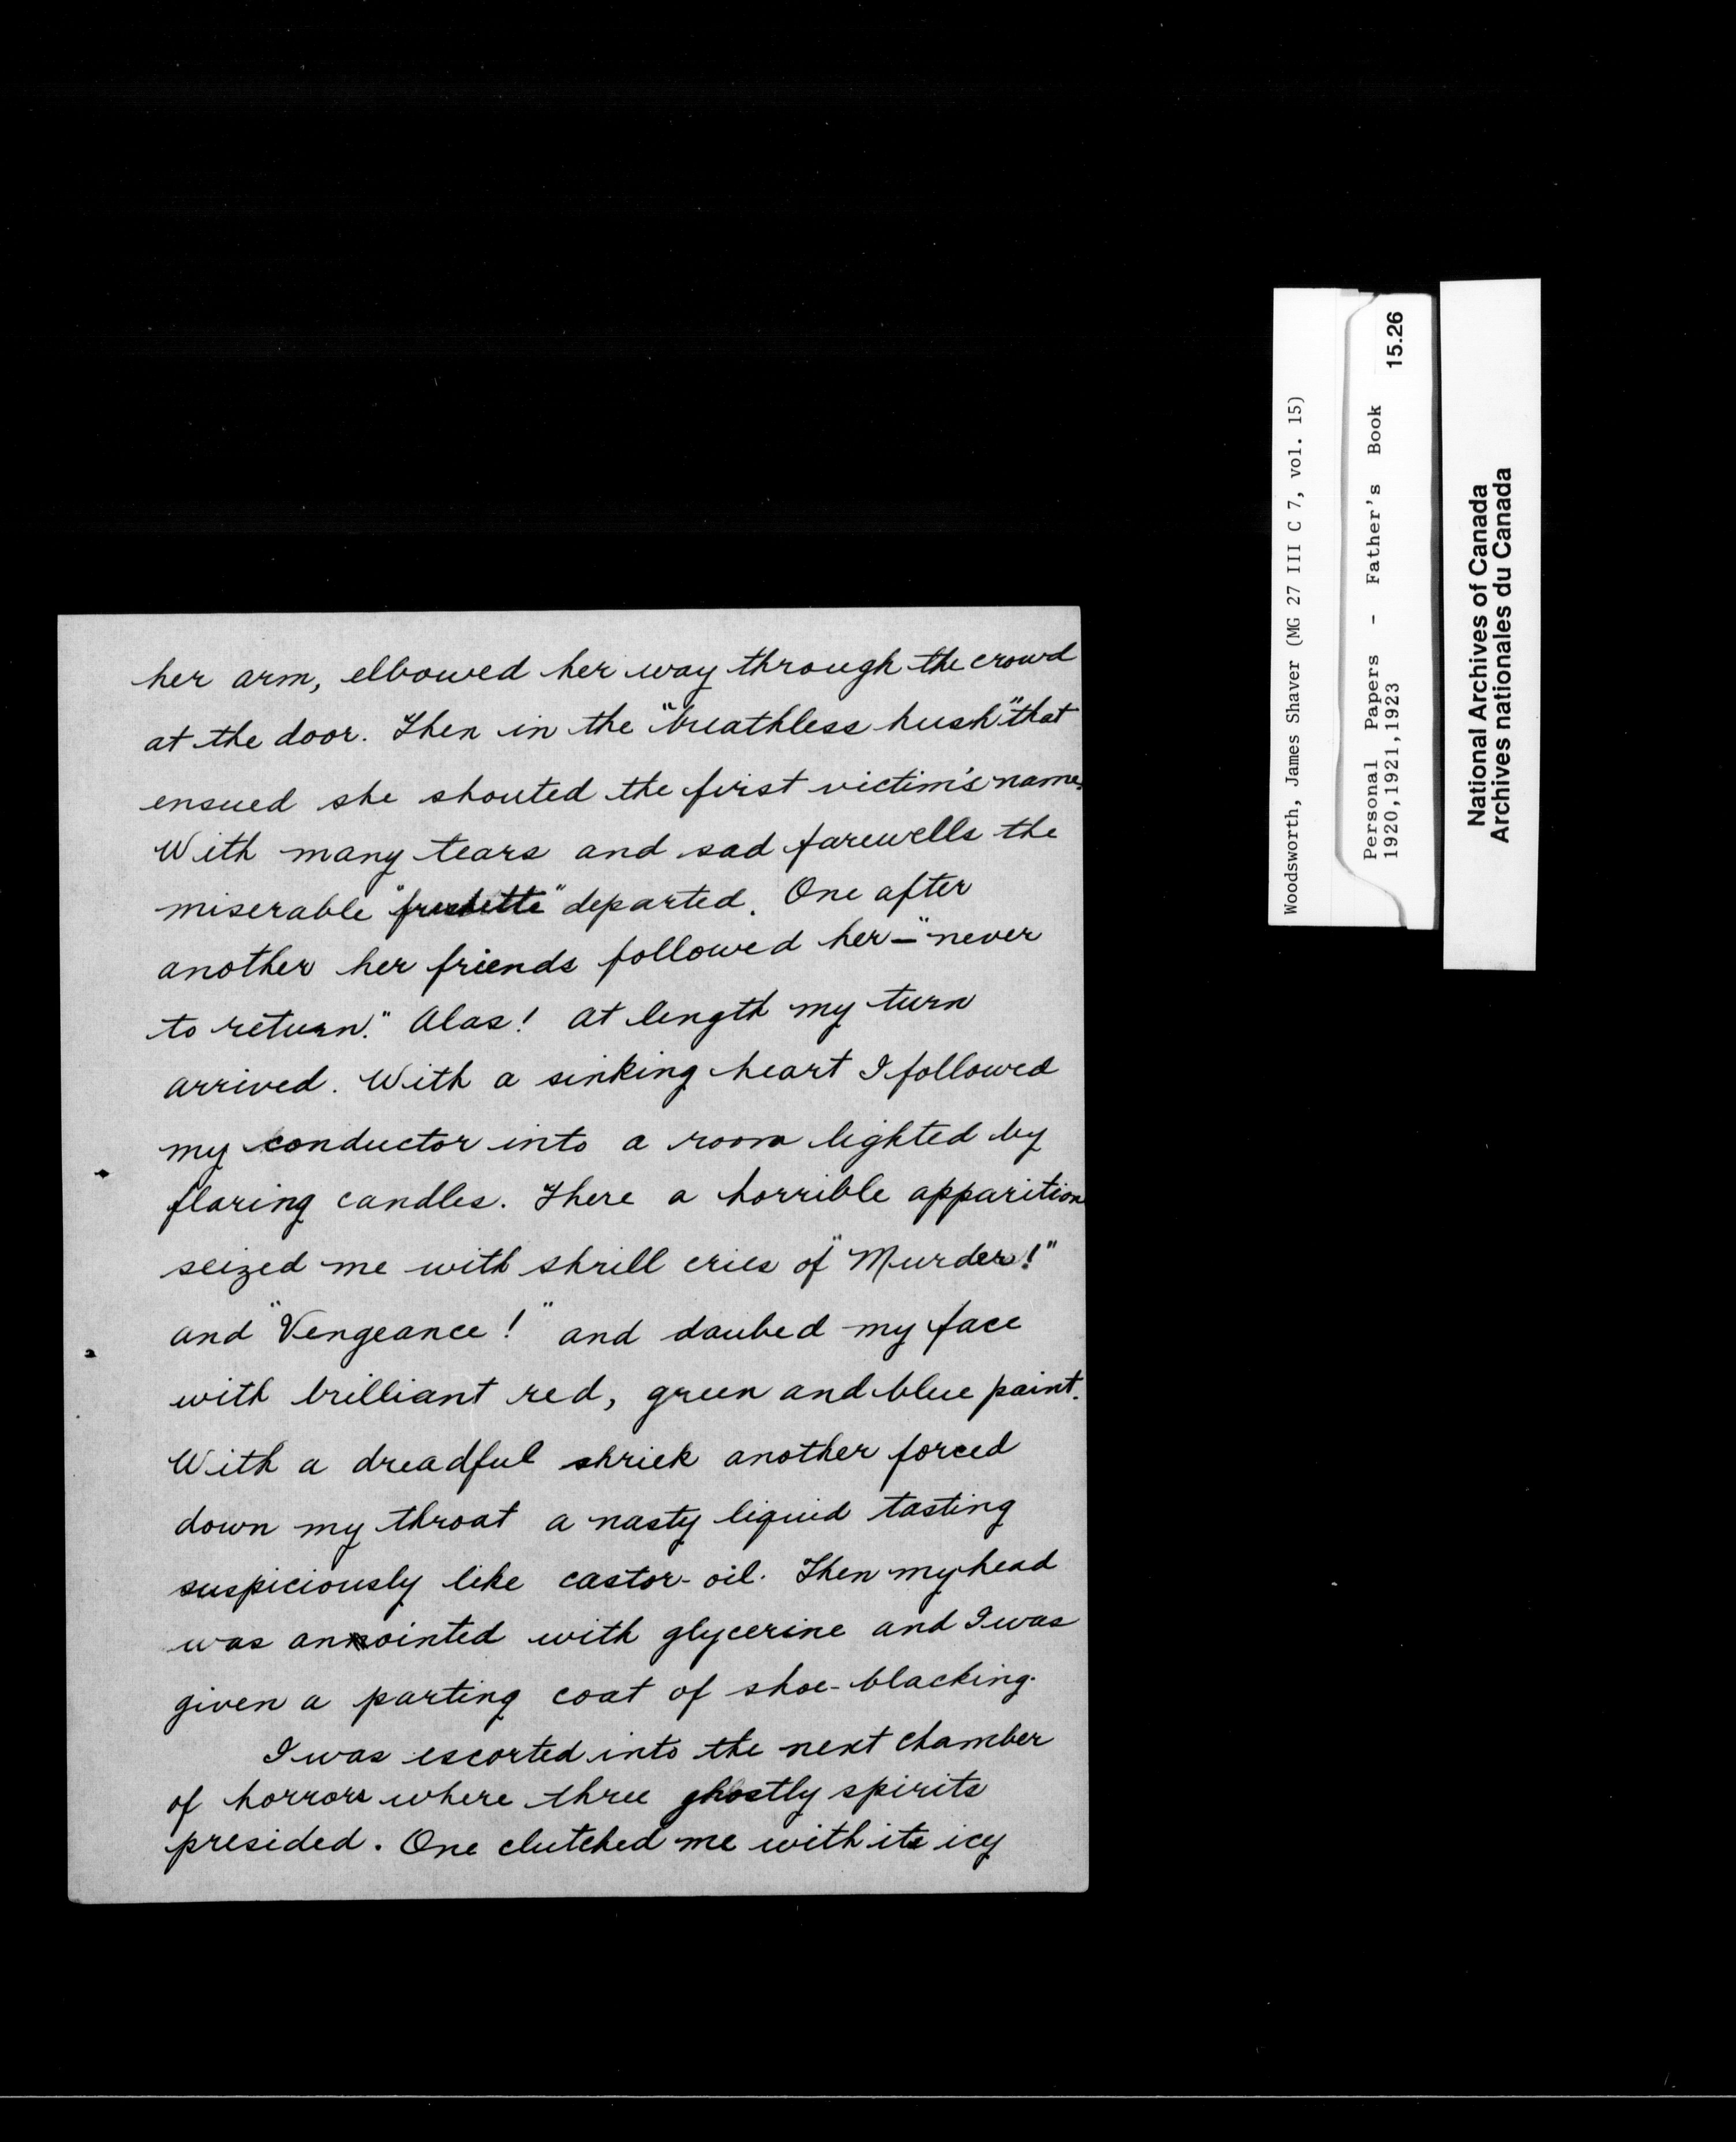 her arm, elbowed her way through the crowd
at the door. Then in the "breathless hush" that
ensued she shouted the first victim's name.
With many tears and sad farewells the
miserable "freshette" departed. One after
another her friends followed her—"never
to return." Alas! At length my turn
arrived. With a sinking heart I followed
my conductor into a room lighted by
flaring candles. There a horrible apparition
seized me with shrill cries of "Murder!"
and "Vengeance!" and daubed my face
with brilliant red, green and blue paint.
With a dreadful shriek another forced
down my throat a nasty liquid tasting
suspiciously like castor-oil. Then my head
was anointed with glycerine and I was
given a parting coat of shoe-blacking.
I was escorted into the next chamber
of horrors where three ghostly spirits
presided. One clutched me with its icy
Woodsworth, James Shaver (MG 27 III C 7, vol. 15)
Personal Papers - Father's Book 15.26
1920,1921,1923
National Archives of Canada
Archives nationales du Canada